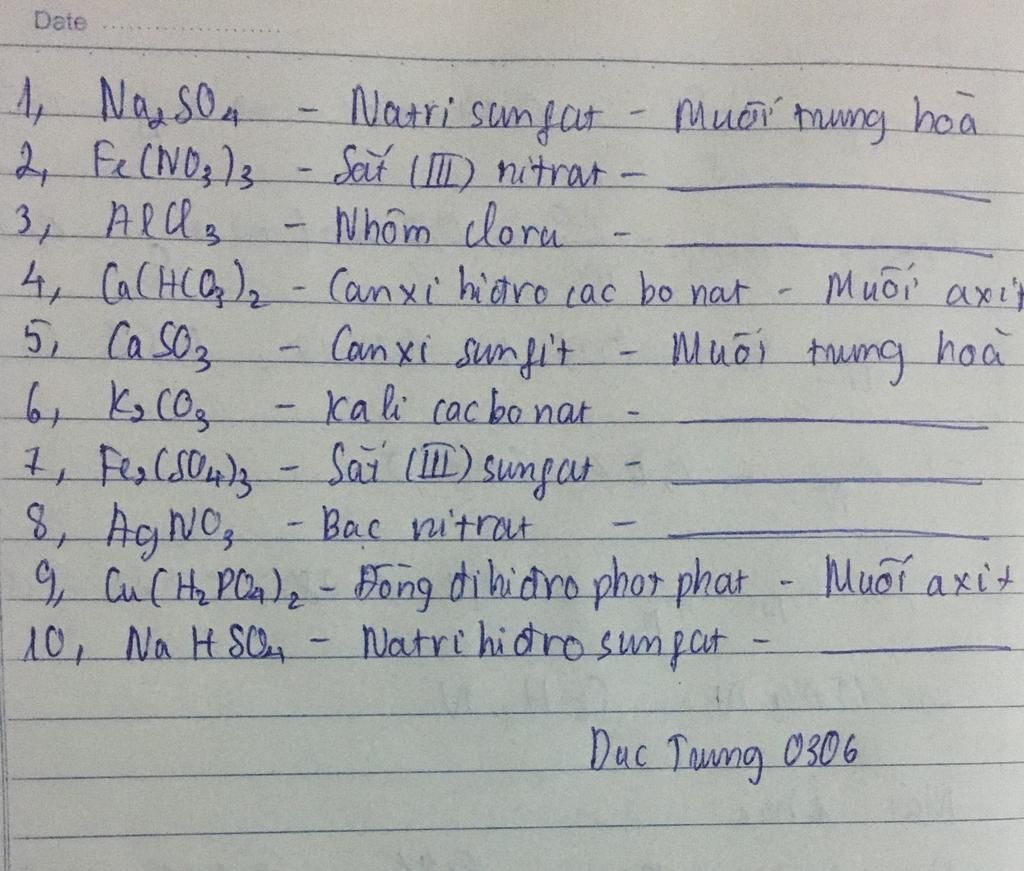 Date ........................
1, Na₂SO₄ - Natri sunfat - Muối trung hoà
2, Fe(NO₃)₃ - Sắt (III) nitrat - ________
3, AlCl₃ - Nhôm clorua - ________
4, Ca(HCO₃)₂ - Canxi hiđro cacbonat - Muối axit
5, CaSO₃ - Canxi sunfit - Muối trung hoà
6, K₂CO₃ - Kali cacbonat - ________
7, Fe₂(SO₄)₃ - Sắt (III) sunfat - ________
8, AgNO₃ - Bạc nitrat - ________
9, Cu(H₂PO₄)₂ - Đồng đihiđro photphat - Muối axit
10, NaHSO₄ - Natri hiđro sunfat - ________
Duc Trung 0306